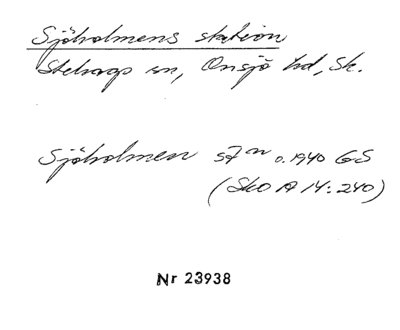 Sjöholmens station
Stehags sn, Onsjö hd, Sk.
Sjöholmen stn o. 1940 GS
(SkO A 14:240)
Nr 23938